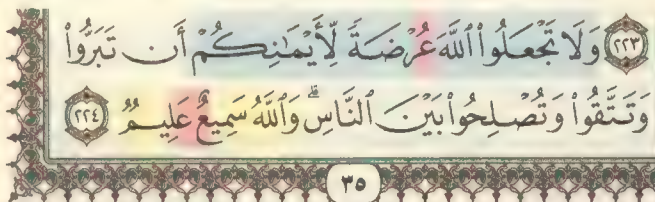 ﴿٢٢٣﴾ وَلَا تَجْعَلُوا۟ ٱللَّهَ عُرْضَةً لِّأَيْمَـٰنِكُمْ أَن تَبَرُّوا۟
وَتَتَّقُوا۟ وَتُصْلِحُوا۟ بَيْنَ ٱلنَّاسِ ۗ وَٱللَّهُ سَمِيعٌ عَلِيمٌ ﴿٢٢٤﴾
٣٥